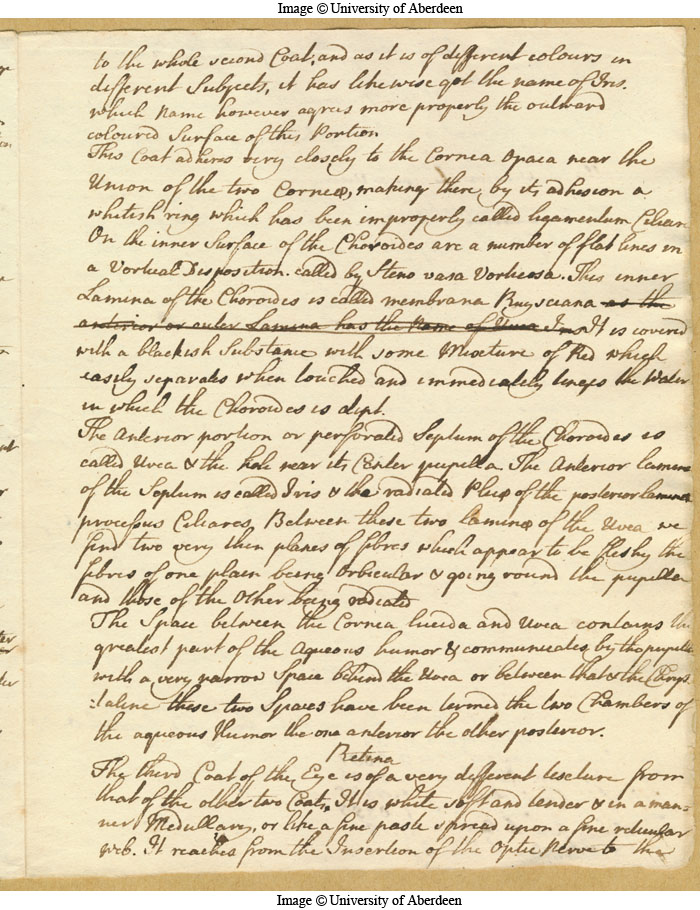 Image © University of Aberdeen
to the whole second Coat, and as it is of different colours in
different Subjects, it has likewise got the name of Iris.
which Name however agrees more properly the outward
coloured Surface of this Portion
This Coat adheres very closely to the Cornea Opaca near the
Union of the two Corneæ, making there by its adhesion a
whitish ring which has been improperly called ligamentum Ciliare
On the inner Surface of the Choroides are a number of flat lines in
a Vortical Disposition. called by Steno vasa Vorticosa. This inner
Lamina of the Choroides is called membrana Ruysciana as the
anterior or outer Lamina has the Name of Uvea Iris It is covered
with a blackish Substance with some Mixture of Red which
easily separates when touched and immediately tinges the Water
in which the Choroides is dipt.
The Anterior portion or perforated Septum of the Choroides is
called Uvea & the hole near its Center pupilla The Anterior lamina
of the Septum is called Iris & the radiated Plicæ of the posterior lamina
processus Ciliares, Between these two laminæ of the Uvea we
find two very thin planes of fibres which appear to be fleshy the
fibres of one plain being Orbicular & going round the pupilla
and those of the Other being radiated
The Space between the Cornea lucida and Uvea contains the
greatest part of the Aqueous humor & communicates by the pupilla
with a very narrow Space behind the Uvea or between that & the Chrys
:taline these two Spaces have been termed the two Chambers of
the aqueous Humor the one anterior the other posterior.
Retina
The third Coat of the Eye is of a very different texture from
that of the other two Coats, It is white soft and tender & in a man-
ner Medullary, or like a fine paste spread upon a fine reticular
web. It reaches from the Insertion of the Optic Nerve to the
Image © University of Aberdeen